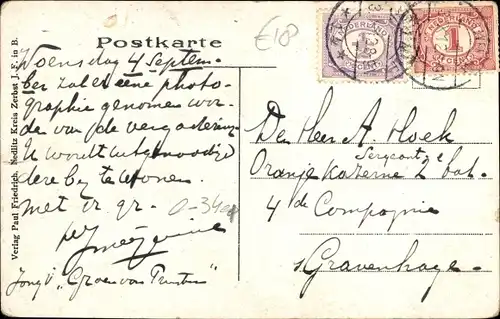 Postkarte
£18
Verlag Paul Friedrich, Sedlitz Kreis Zerbst J. F. in B.
NEDERLAND
1
NEDERLAND
1
CENT
Woensdag 4 Septem-
ber zal eene photo-
graphie genomen wor-
den van de vergadering
U wordt uitgenoodigd
deze bij te wonen.
met vr. gr.
0-34
Jongv. "Groen van Prinst."
Den Heer A. Hoek
Sergeant
Oranje Kazerne 2e bat.
4de Compagnie
s Gravenhage.